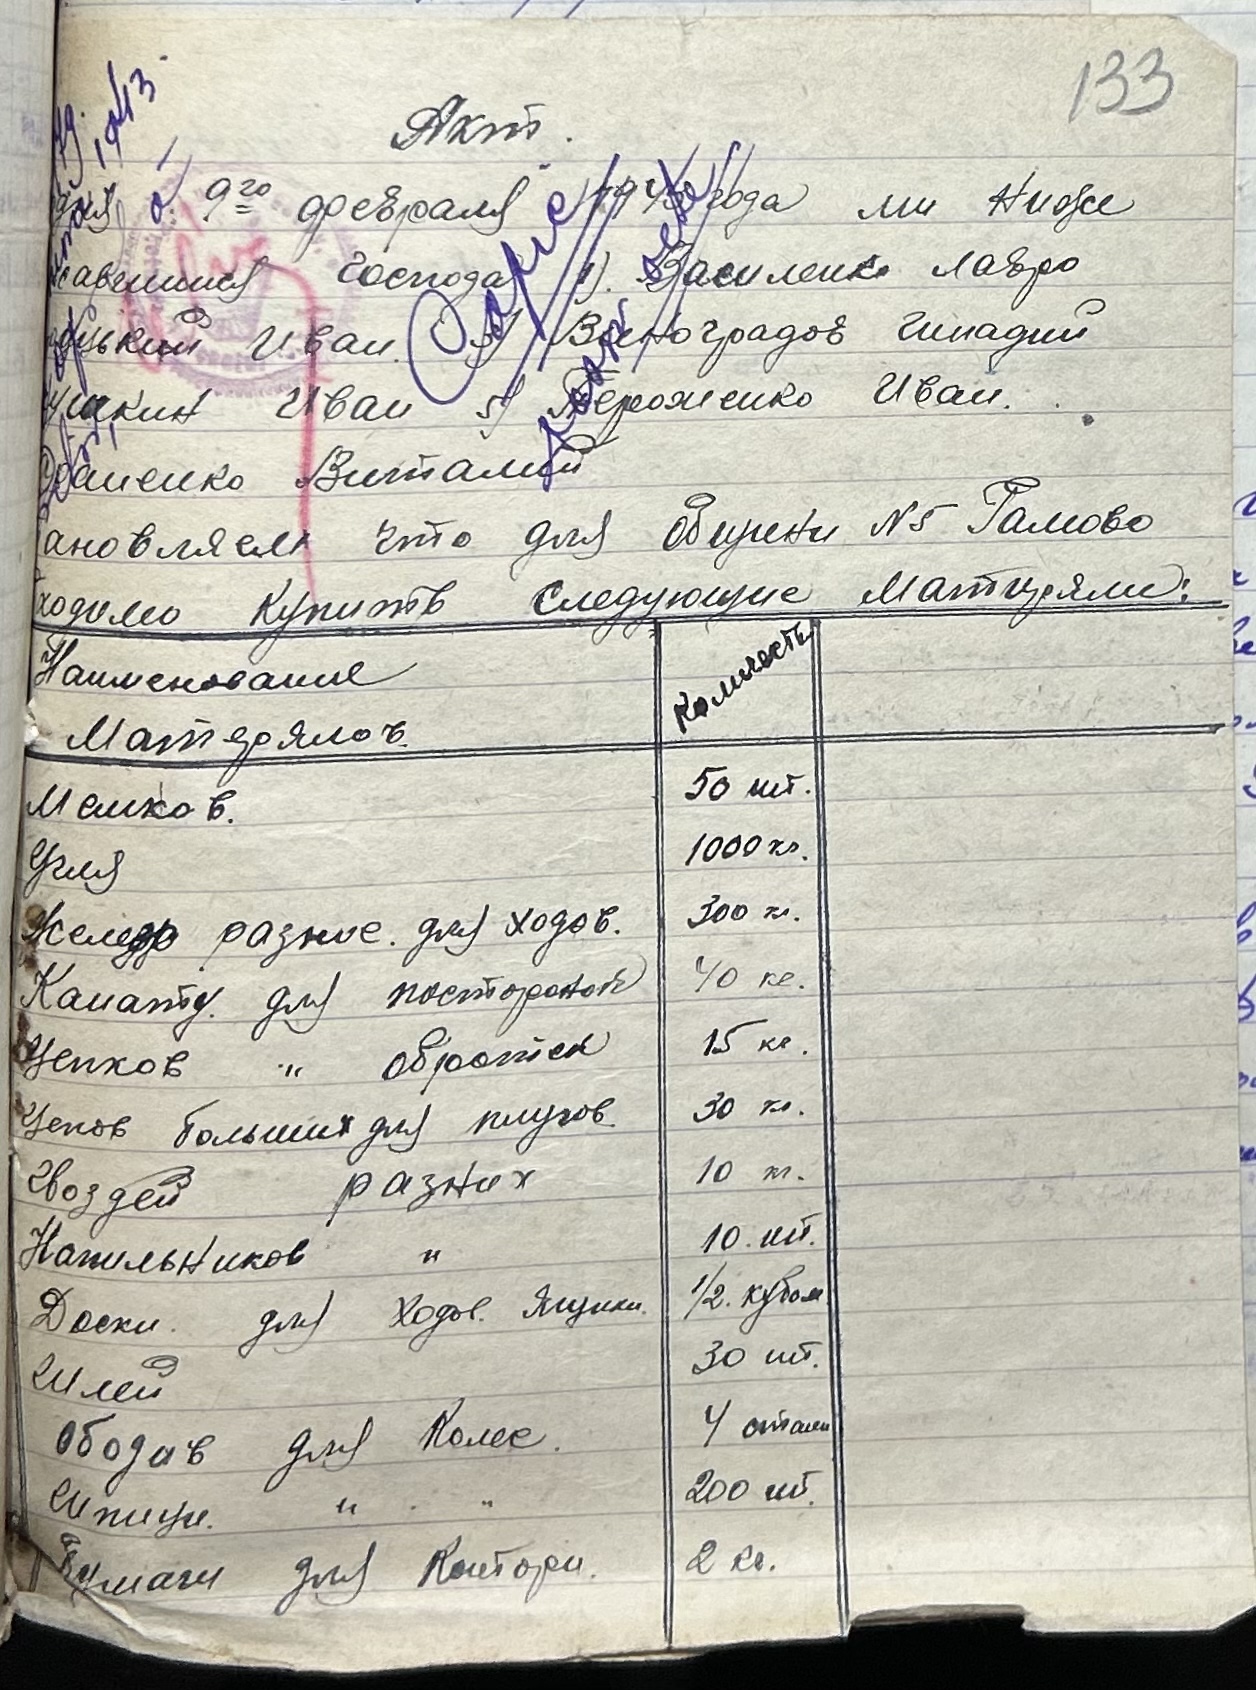 133
Акт.
9го февраля 1943 года ми ниже
савшиися господа 1). Василенко Лавро
Иван. 3) Виноградов Гинадий
Иван 5) Иван.
Виталий
ановляем что для общини N5 Гамово
ходимо купить следующие Материяли:
Наименование
Материялов.
Количеств
Мешков. 50 шт.
Угля 1000 кг.
разние. для ходов. 300 кг.
Канату. для постороной 40 кг.
Цепков " обротей 15 кг.
Цепов больших для плугов. 30 кг.
Гвоздей разних 10 кг.
Напильников " 10. шт.
Доски. для Ходов. Ящики. 1/2. кубом
Шлей 30 шт.
Ободав для Колес. 4 стани
Шпици. " " 200 шт.
Бумаги для Контори. 2 кг.